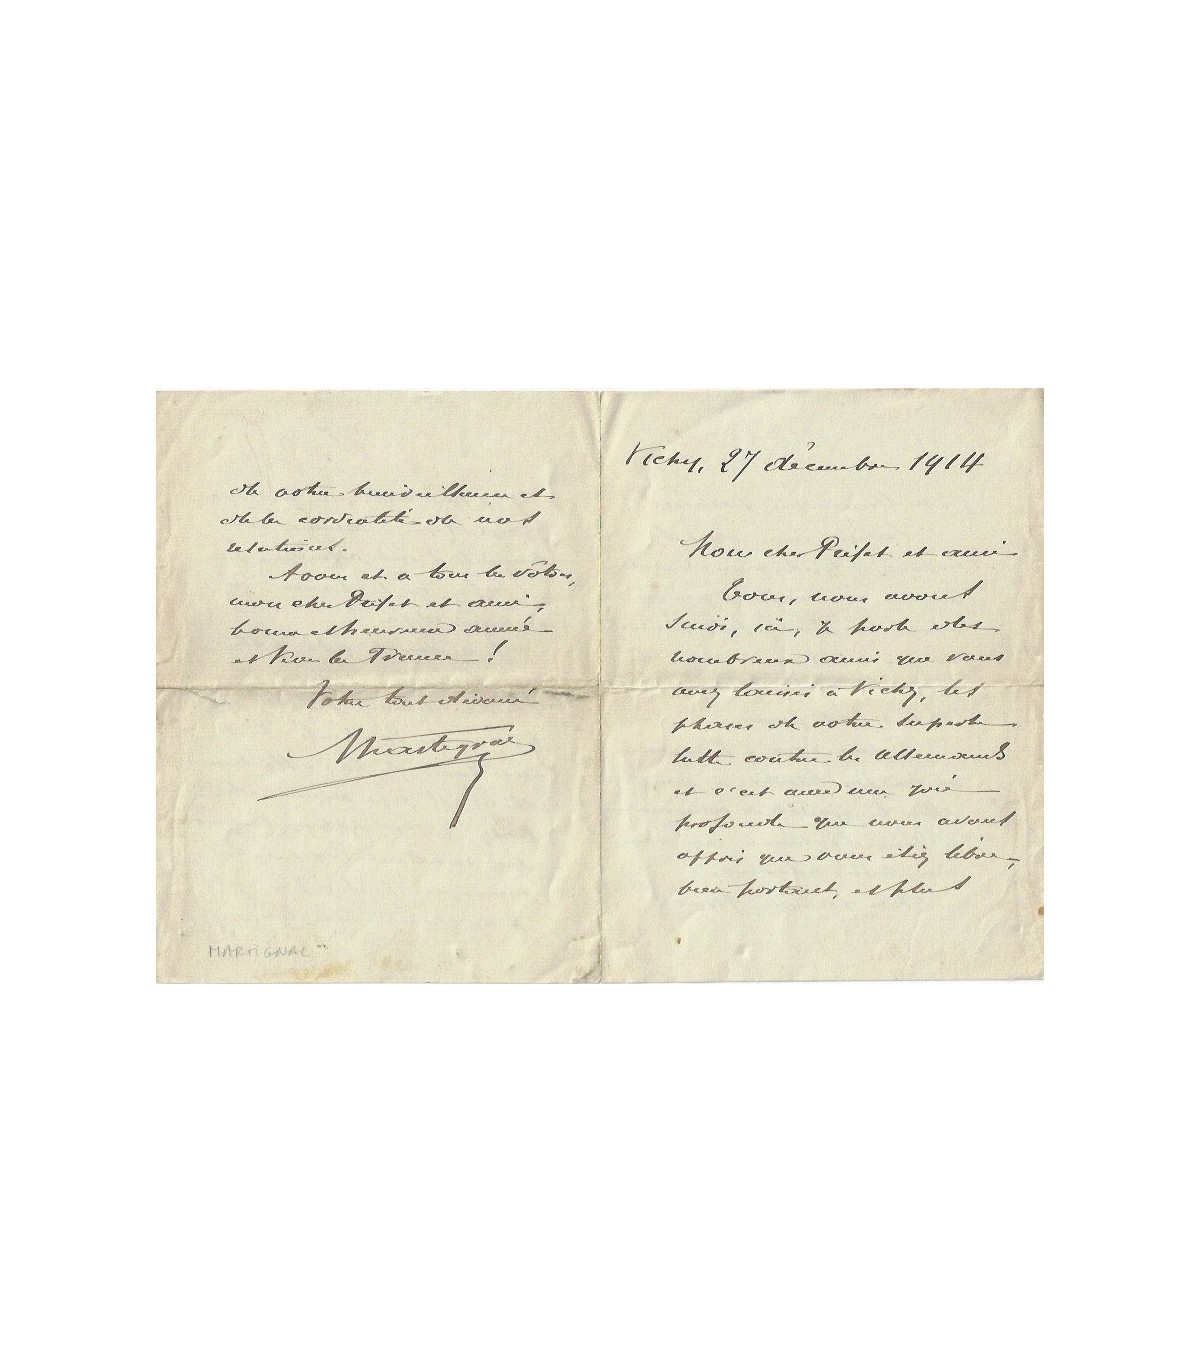 Vichy, 27 décembre 1914
Mon cher Préfet et ami
Tous, nous avons
suivi, ici, je parle des
nombreux amis que vous
avez laissés à Vichy, les
phases de votre superbe
lutte contre les Allemands
et c'est avec une joie
profonde que nous avons
appris que vous étiez libre,
bien portant, et plus
de votre bienveillance et
de la cordialité de nos
relations.
A vous et a tous les vôtres,
mon cher Préfet et ami,
bonne et heureuse année
et Vive la France !
Votre tout dévoué
Martignac
MARTIGNAC